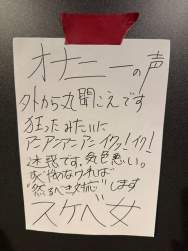 オナニーの声
外から丸聞こえです
狂ったみたいに
アニアンアニアンイクッ!イク!
迷惑です。気色悪い。
改善なければ
然るべき対応します
スケベ女